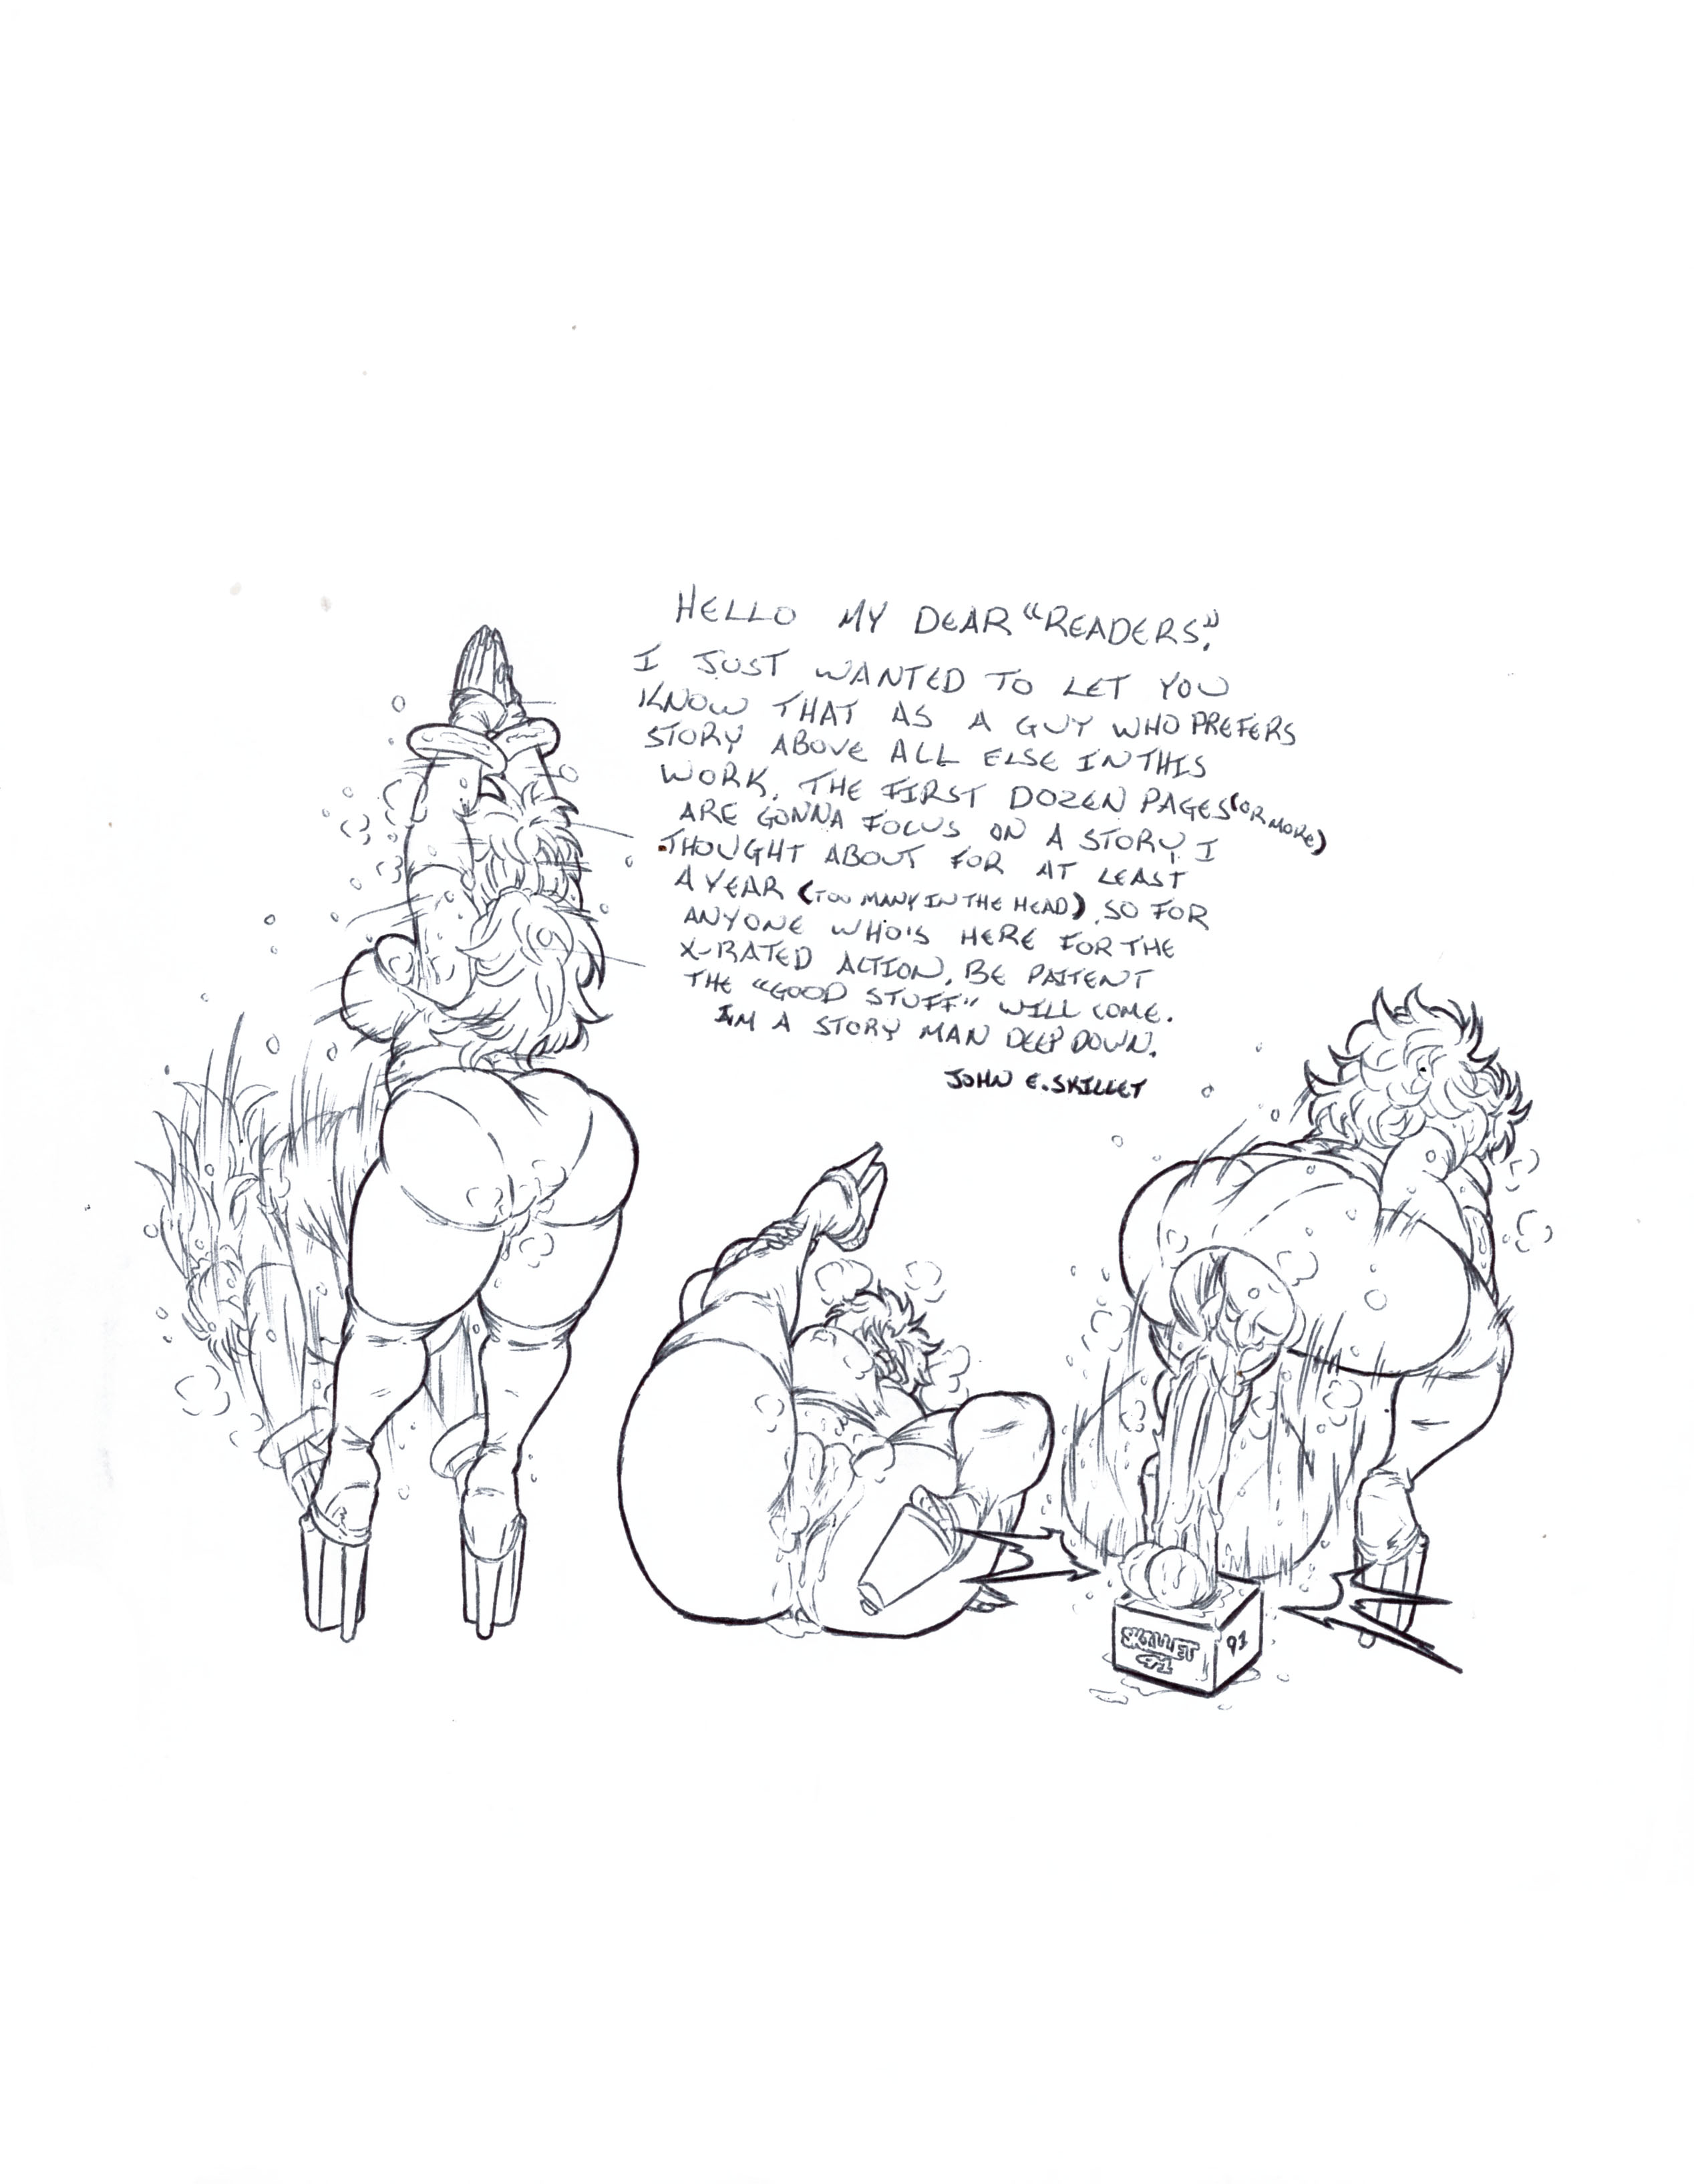 HELLO MY DEAR "READERS."
I JUST WANTED TO LET YOU
KNOW THAT AS A GUY WHO PREFERS
STORY ABOVE ALL ELSE IN THIS
WORK. THE FIRST DOZEN PAGES (OR MORE)
ARE GONNA FOCUS ON A STORY I
THOUGHT ABOUT FOR AT LEAST
A YEAR (TOO MANY IN THE HEAD). SO FOR
ANYONE WHO'S HERE FOR THE
X-RATED ACTION, BE PAITENT
THE "GOOD STUFF" WILL COME.
IM A STORY MAN DEEP DOWN.
JOHN E. SKILLET
SKILLET
91
91